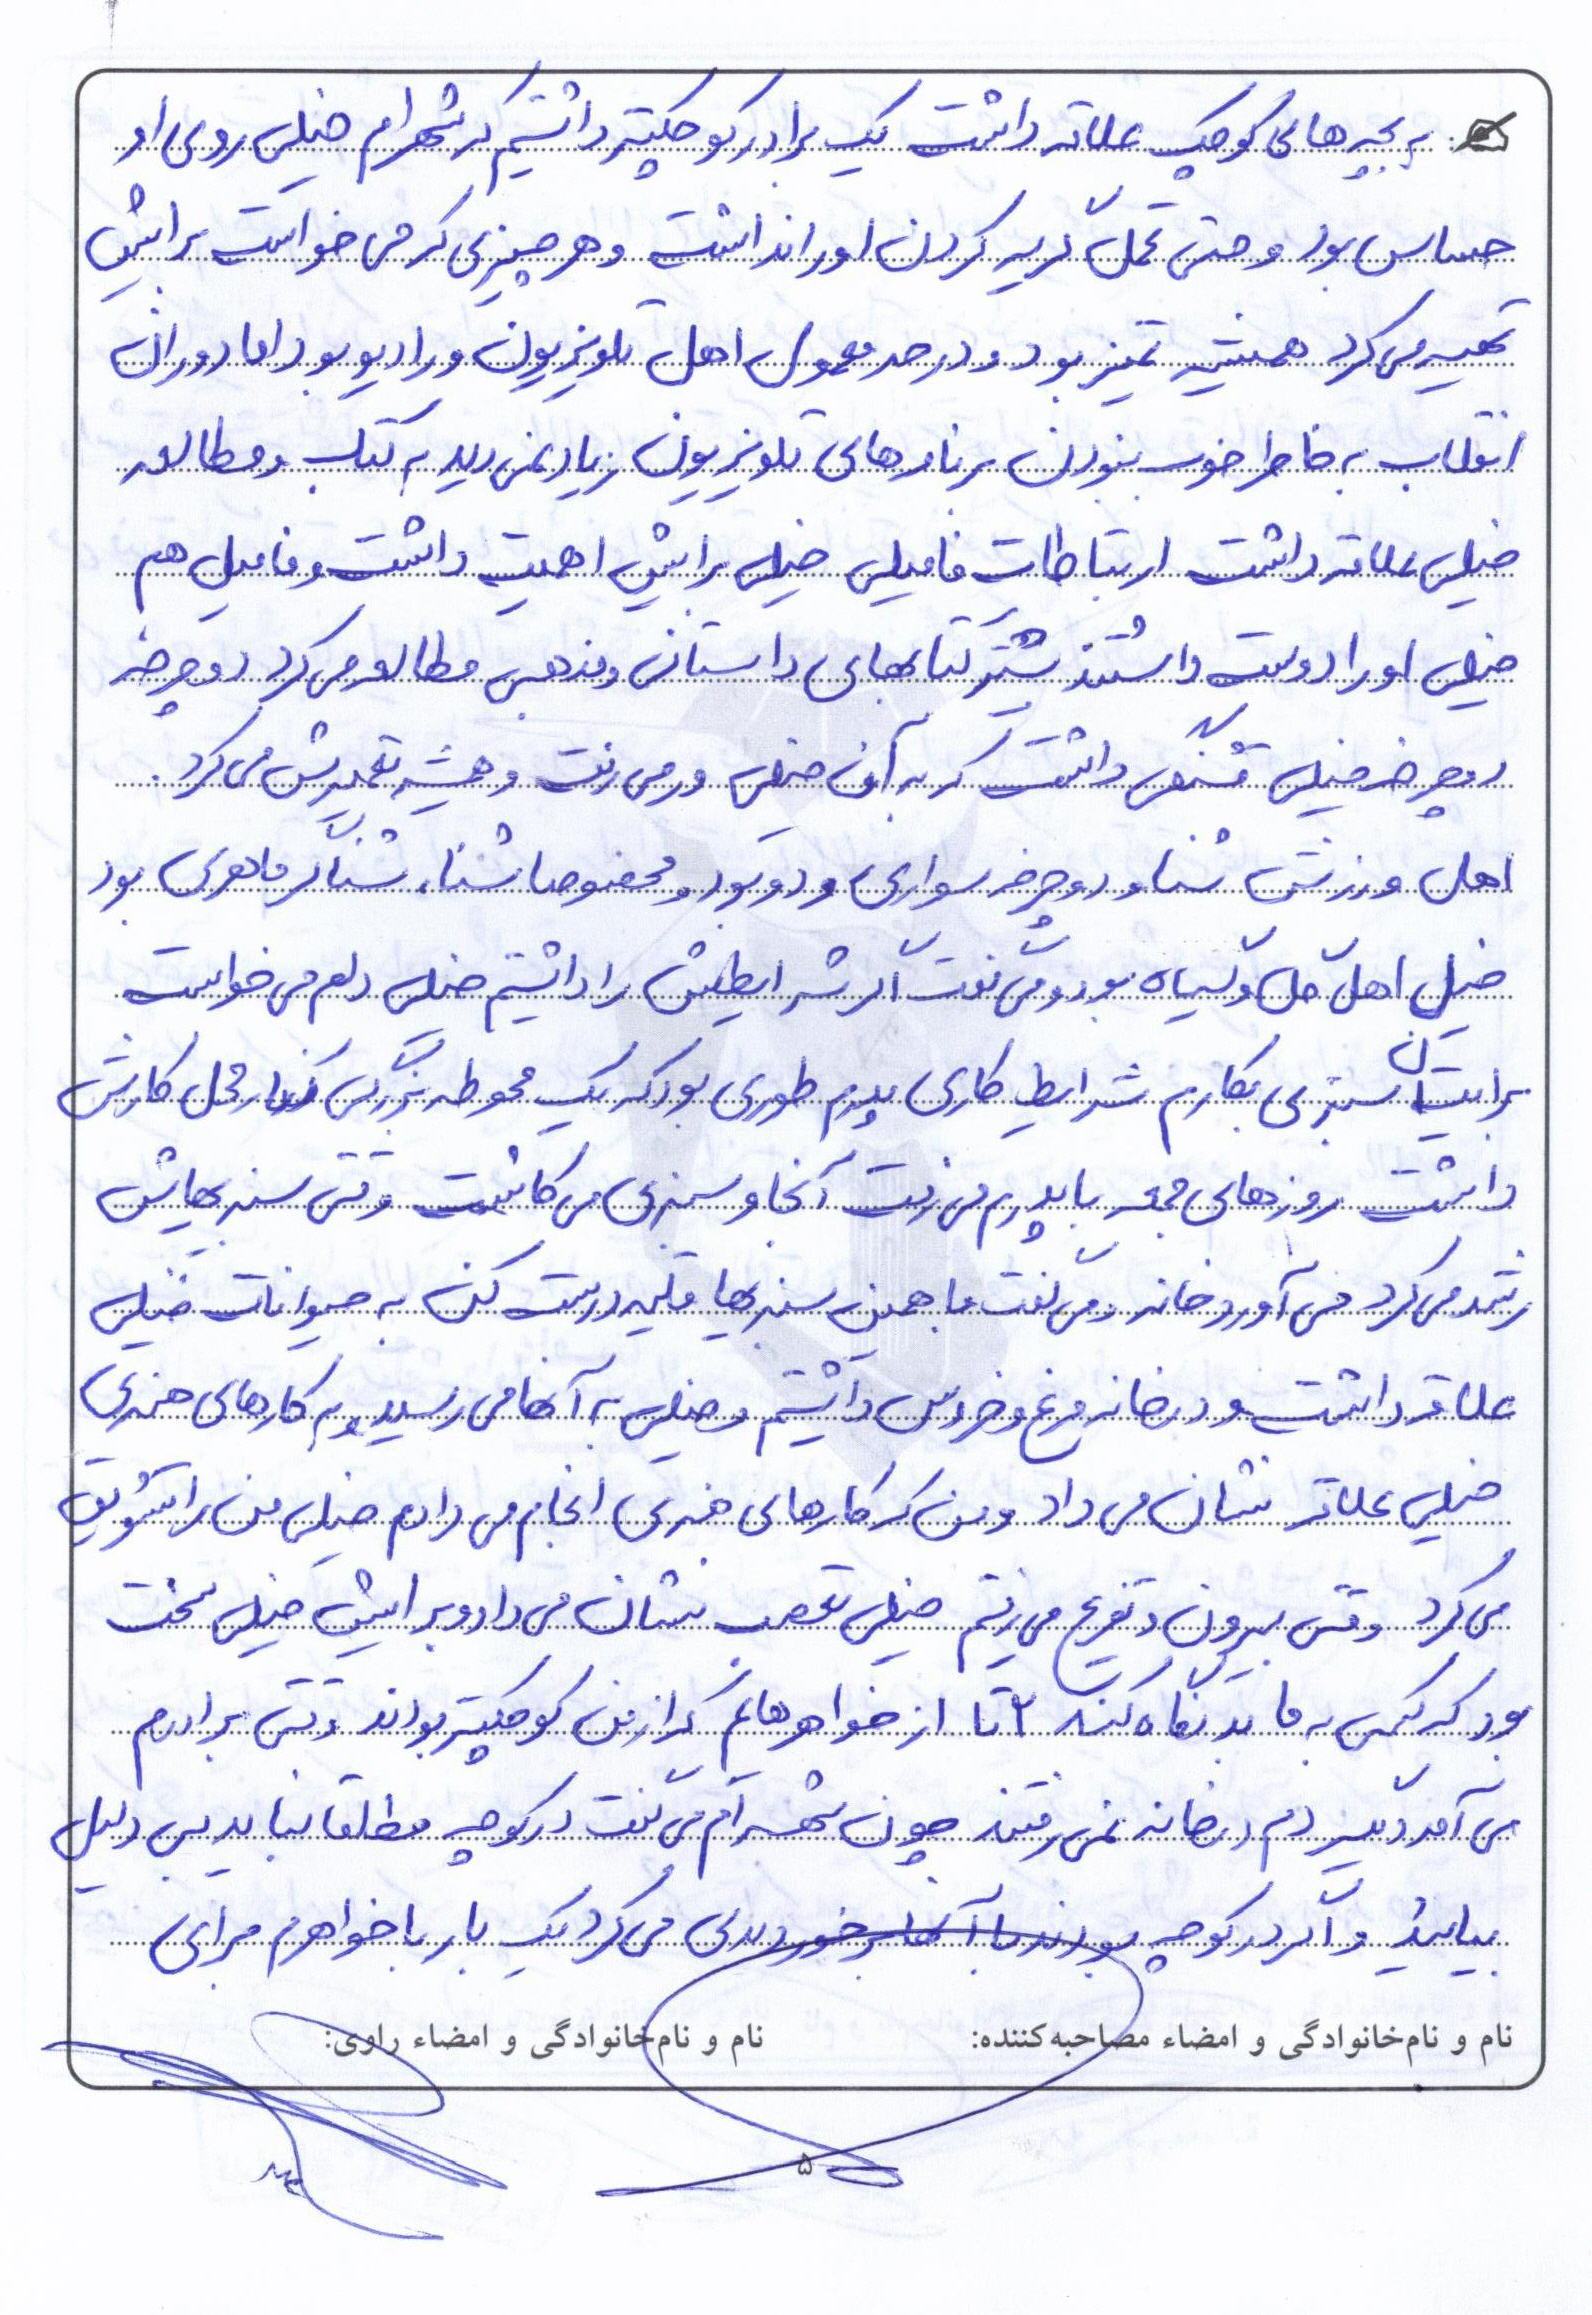 به بچه‌های کوچک علاقه داشت یک برادر کوچکتر داشتیم که شهرام خیلی روی او
حساس بود و حتی تحمل گریه کردن او را نداشت و هر چیزی که می خواست برایش
تهیه می کرد همیشه تمیز بود و در حد معمول اهل تلویزیون و رادیو بود اما دوران
انقلاب به خاطر خوب نبودن برنامه‌های تلویزیون زیاد نمی دید به کتاب و مطالعه
خیلی علاقه داشت ارتباطات فامیلی خیلی برایش اهمیت داشت و فامیل هم
خیلی او را دوست داشتند بیشتر کتابهای داستانی و مذهبی مطالعه می کرد دوچرخه
دوچرخه خیلی قشنگی داشت که به آن خیلی ور می رفت و همیشه تعمیرش می کرد.
اهل ورزش شنا و دوچرخه سواری و دو بود و مخصوصا شنا، شناگر ماهری بود
خیلی اهل گل و گیاه بود و می گفت اگر شرایطش را داشتیم خیلی دلم می خواست
برایتان سبزی بکارم شرایط کاری پدرم طوری بود که یک محوطه بزرگی کنار محل کارش
داشت روزهای جمعه با پدرم می رفت آنجا و سبزی می کاشت وقتی سبزیهایش
رشد می کرد می آورد خانه و می گفت با همین سبزیها قلیه درست کن به حیوانات خیلی
علاقه داشت و در خانه مرغ و خروس داشتیم و خیلی به آنها می رسید و به کارهای هنری
خیلی علاقه نشان می داد و من که کارهای هنری انجام می دادم خیلی من را تشویق
می کرد وقتی بیرون و تفریح می رفتیم خیلی تعصب نشان می داد و برایش خیلی سخت
بود که کسی به ما بد نگاه کند ۲ تا از خواهرهایم که از من کوچکتر بودند وقتی برادرم
می آمد دیگر دم در خانه نمی رفتند چون شهرام می گفت در کوچه مطلقا نباید بی دلیل
بیایند و اگر در کوچه بودند با آنها برخورد بدی می کرد یک بار با خواهرم برای
نام و نام‌خانوادگی و امضاء مصاحبه‌کننده:
نام و نام‌خانوادگی و امضاء راوی:
۵